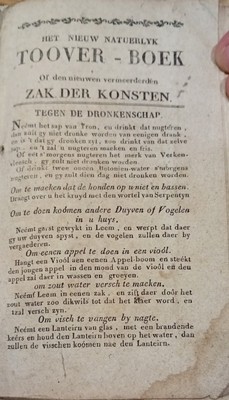 HET NIEUW NATUERLYK
TOOVER - BOEK
Of den nieuwen vermeerderden
ZAK DER KONSTEN.
TEGEN DE DRONKENSCHAP.
Neemt het zap van , en drinkt dat nugteren,
zult gy niet dronken worden van eenigen drank,
is 't dat gy dronken zyt, zou drinkt van zelve
zap, en 't zal u nugteren maeken en fris.
Of eet 's morgens nugteren het merk van Verken-
, gy zult niet dronken worden.
Of drinkt twee oncen water 's morgens
nugteren, en gy zult dien dag niet dronken worden.
Om te maeken dat de honden op u niet en bassen.
Draegt over u het kruyd met den wortel van Serpentyn
Om te doen kodmen andere Duyven of Vogelen
in u huys.
Neemt gerst gewykt in Leem, en werpt dat daer
gy uw duyven spyst, en de vogelen zullen daer by
vergaederen.
Om eenen appel te doen in een vióól.
Hangt een Vióól aen eenen Appel-boom en steékt
den jongen appel in den mond van de vióól en den
appel zal daer in wassen en groeyen.
om zout water versch te maeken.
Neémt Leem in eenen zak, en zift daer door het
zout water zoo dikwils tot dat het zoet word, en
zaal versch zyn.
Om visch te vangen by nagte.
Neémt een Lanteirn van glas, met een brandende
keérs en houd den Lanteirn boven op het water, dan
zullen de visschen koómen nae den Lanteirn.